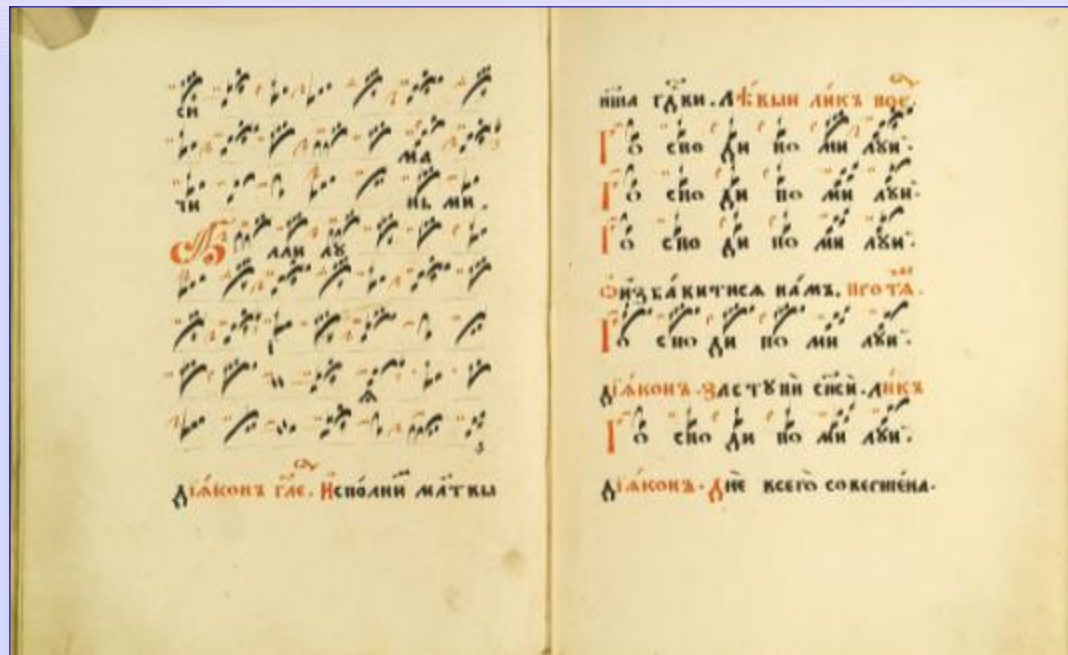 си
ма
чи нь ми.
А лли лꙋ
Дїа́конъ гл҃е. И҆спо́лни мл҃твы
на́ша гдⷭ҇ви. Лѣ́вый ли́къ пое
Го спо ди по ми лꙋй.
Го спо ди по ми лꙋй.
Го спо ди по ми лꙋй.
Ѿ и҆зба́витисѧ на́мъ.
Го спо ди по ми лꙋй.
Дїа́конъ. Застꙋпѝ сп҃сѝ. Ли́къ
Го спо ди по ми лꙋй.
Дїа́конъ. Днѐ всего̀ соверше́на.